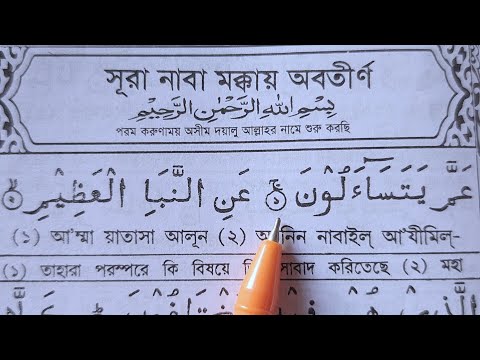 সূরা নাবা মক্কায় অবতীর্ণ
بِسْمِ اللهِ الرَّحْمٰنِ الرَّحِيْمِ
পরম করুণাময় অসীম দয়ালু আল্লাহর নামে শুরু করছি
عَمَّ يَتَسَآءَلُوْنَ ۚ‏﴿১﴾ عَنِ النَّبَاِ الْعَظِيْمِ
(১) আ'ম্মা ইয়াতাসা আলূন (২) নাবাইল্ আ'যীমিল্-
(১) তাহারা পরস্পরে কি বিষয়ে করিতেছে (২) মহা